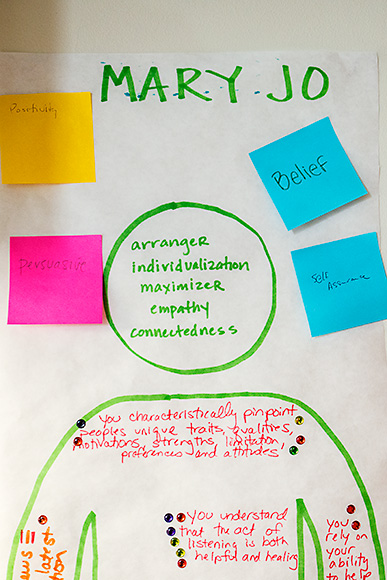 MARY JO
Positivity
Belief
Persuasive
Self
Assurance
arranger
individualization
maximizer
empathy
connectedness
you characteristically pinpoint
peoples unique traits, qualities,
motivations, strengths, limitation,
preferences and attitudes
you understand
that the act of
listening is both
helpful and healing
you
rely on
your
ability
to help